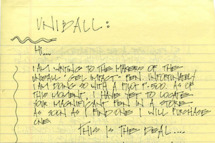 UNIBALL:
HI...
I AM WRITING TO THE MAKERS OF THE
UNIBALL "GEL IMPACT" PEN. UNFORTUNATELY
I AM DOING SO WITH A PILOT P-500. AS OF
THIS MOMENT, I HAVE YET TO LOCATE
YOUR MAGNIFICENT PEN IN A STORE.
AS SOON AS I FIND ONE I WILL PURCHASE
ONE
THIS IS THE DEAL....